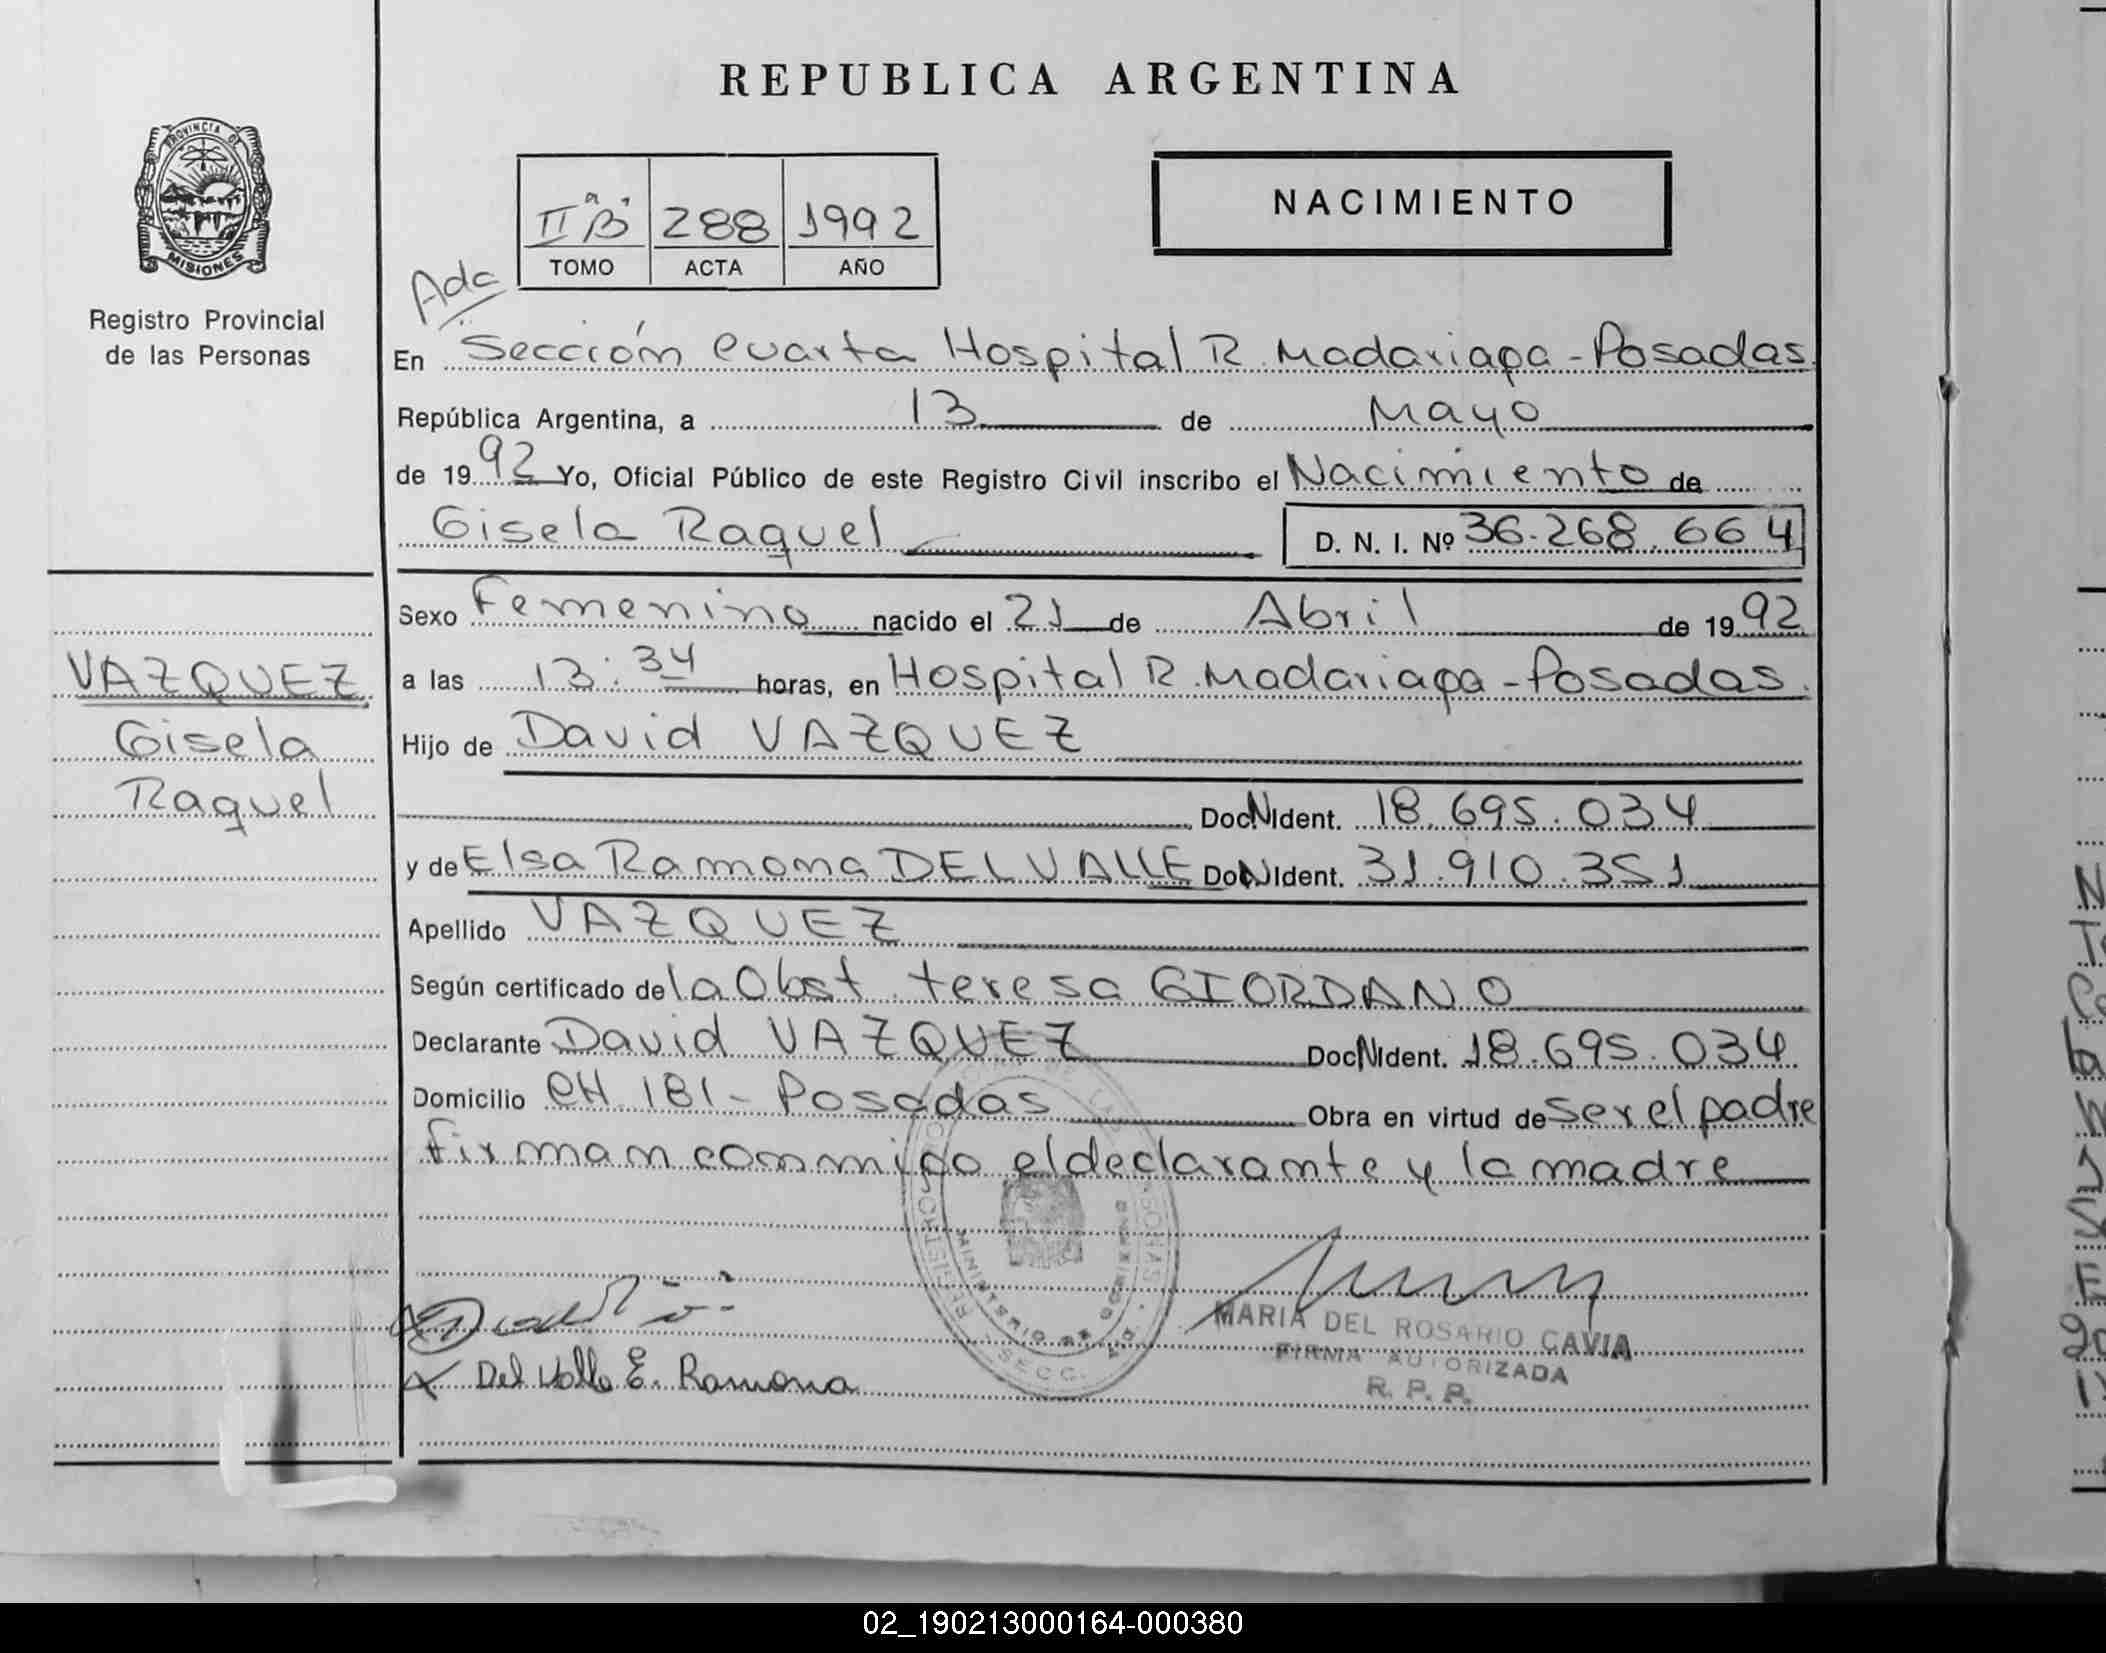 REPUBLICA ARGENTINA
PROVINCIA DE
MISIONES
Registro Provincial
de las Personas
NACIMIENTO
II "B" 288 1992
TOMO ACTA AÑO
Ada
En Sección Cuarta Hospital R. Madariaga - Posadas.
República Argentina, a 13 de Mayo
de 1992 Yo, Oficial Público de este Registro Civil inscribo el Nacimiento de
Gisela Raquel D. N. I. Nº 36.268.664
Sexo Femenino nacido el 21 de Abril de 1992
a las 13:34 horas, en Hospital R. Madariaga - Posadas.
Hijo de David VAZQUEZ
Doc N Ident. 18.695.034
y de Elsa Ramona DEL VALLE Doc N Ident. 31.910.351
Apellido VAZQUEZ
Según certificado de la Obst. teresa GIORDANO
Declarante David VAZQUEZ Doc N Ident. 18.695.034
Domicilio CH 181 - Posadas Obra en virtud de ser el padre
firman conmigo el declarante y la madre
VAZQUEZ
Gisela
Raquel
MARIA DEL ROSARIO CAVIA
FIRMA AUTORIZADA
R. P. P.
X Del Valle E. Ramona
REGISTRO
MINISTERIO DE
SECC.
02_190213000164-000380